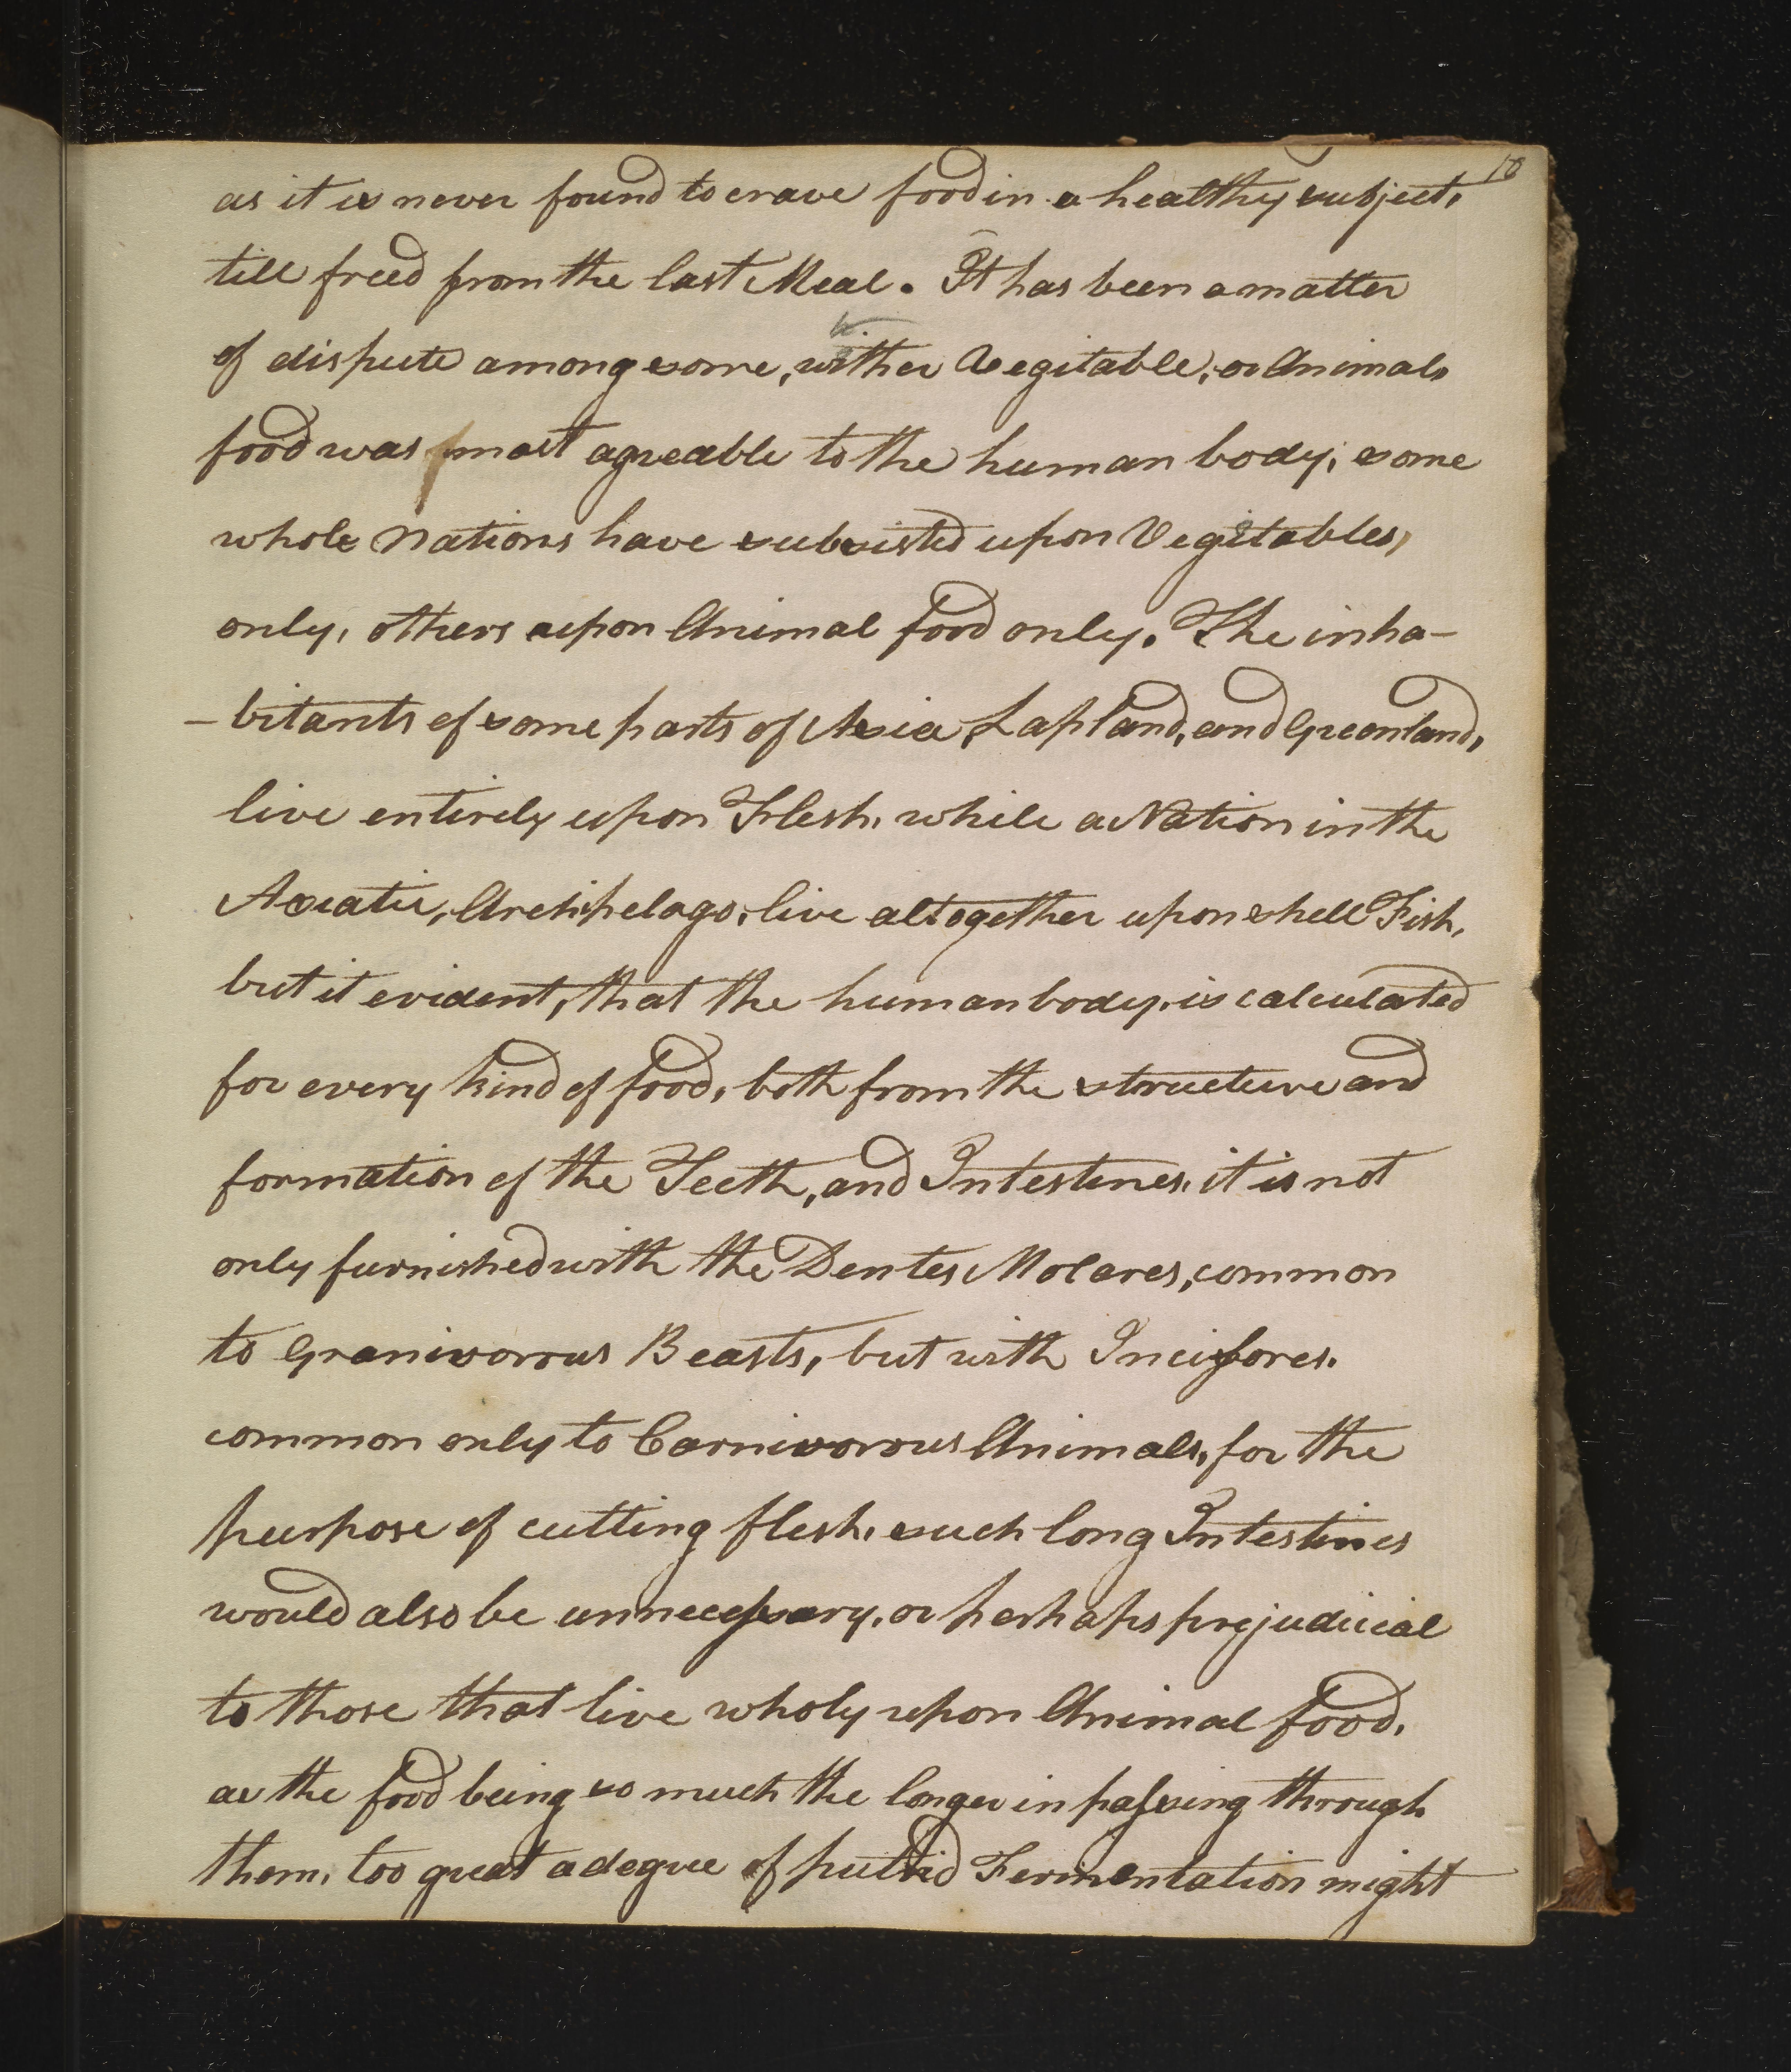 18
as it is never found to crave food in a healthy subject,
till freed from the last Meal. It has been a matter
of dispute among some, wither Vegitable, or Animal
food was most agreable to the human body; some
whole Nations have subsisted upon Vegitables,
only, others upon Animal food only. The inha-
-bitants of some parts of Asia, Lapland, and Greenland,
live entirely upon Flesh, while a Nation in the
Asiatic, Archipelago, live altogether upon shell Fish,
but it evident, that the human body, is calculated
for every kind of food, both from the structure and
formation of the Teeth, and Intestines, it is not
only furnished with the Dentes Molares, common
to Granivorous Beasts, but with Incisores.
common only to Carnivorous Animals, for the
purpose of cutting flesh, such long Intestines
would also be unnecessary, or perhaps prejudicial
to those that live wholy upon Animal food,
as the food being so much the longer in passing through
them, too great a degree of putrid Fermentation might